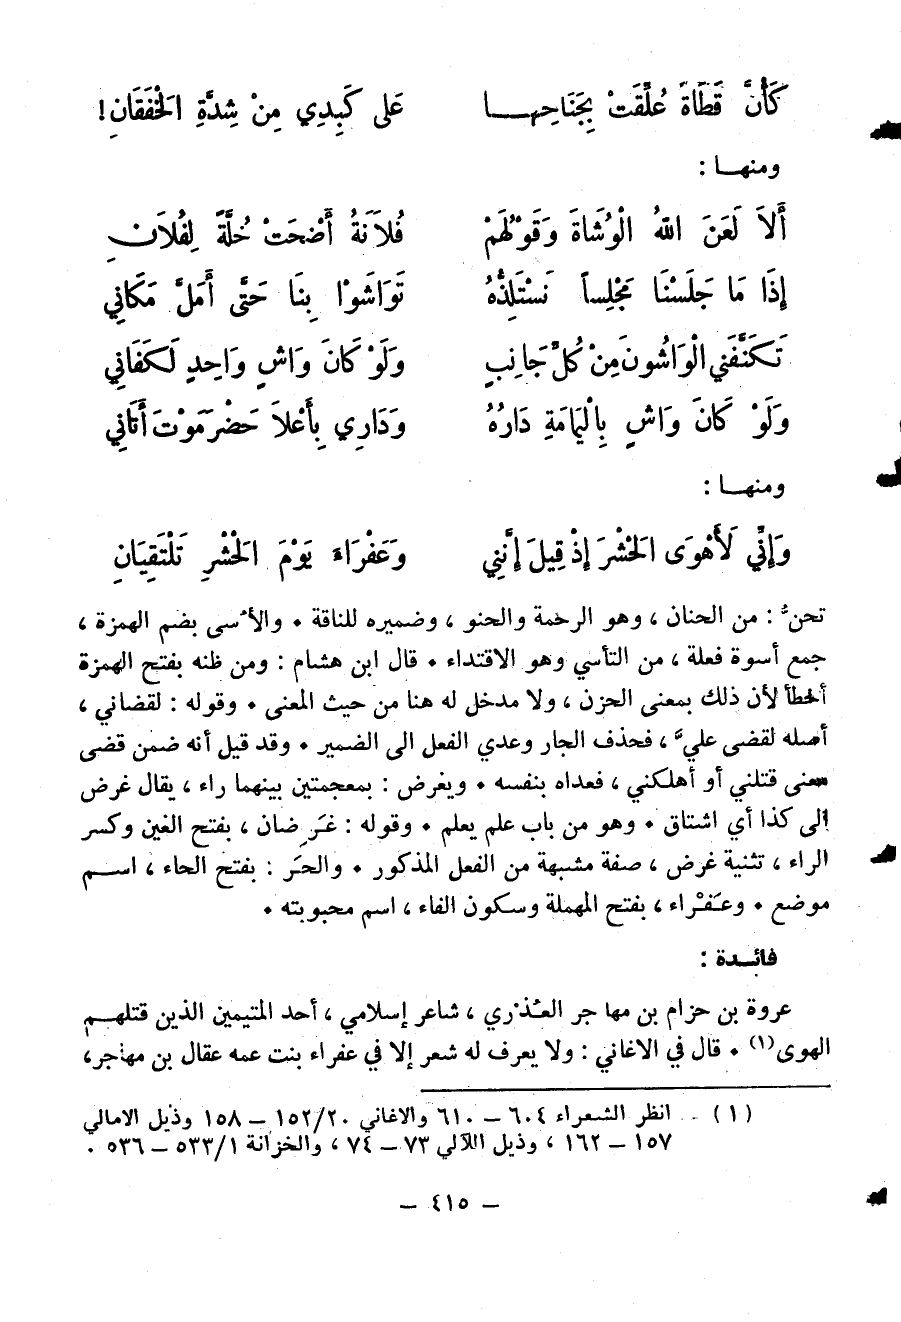 كَأَنَّ قَطَاةً عُلِّقَتْ بِجَنَاحِهـــا عَلى كَبِدِي مِنْ شِدَّةِ الخَفَقَانِ!
ومنهــا :
أَلاَ لَعَنَ اللهُ الْوُشَاةَ وَقَوْلَهُمْ فُلاَنَةُ أَضْحَتْ خُلَّةً لِفُلاَنِ
إِذَا مَا جَلَسْنَا مَجْلِساً نَسْتَلِذُّهُ تَوَاشَوْا بِنَا حَتَّى أَمَلَّ مَكَاني
تَكَنَّفَني الْوَاشُونَ مِنْ كُلِّ جَانِبٍ وَلَوْ كَانَ وَاشٍ وَاحِدٍ لَكَفَاني
وَلَوْ كَانَ وَاشٍ بِالْيَمَامَةِ دَارُهُ وَدَارِي بِأَعْلاَ حَضْرَمَوْتَ أَتَاني
ومنهــا :
وَإِنِّي لَأَهْوَى الحَشْرَ إِذْ قِيلَ إِنَّنِي وَعَفْرَاءَ يَوْمَ الحَشْرِ تَلْتَقِيَانِ
تحنُّ : من الحنان ، وهو الرحمة والحنو ، وضميره للناقة ٠ والأُسى بضم الهمزة ،
جمع أسوة فعلة ، من التأسي وهو الاقتداء ٠ قال ابن هشام : ومن ظنه بفتح الهمزة
أخطأ لأن ذلك بمعنى الحزن ، ولا مدخل له هنا من حيث المعنى ٠ وقوله : لقضاني ،
أصله لقضى عليَّ ، فحذف الجار وعدي الفعل الى الضمير ٠ وقد قيل أنه ضمن قضى
معنى قتلني أو أهلكني ، فعداه بنفسه ٠ ويغرض : بمعجمتين بينهما راء ، يقال غرض
إلى كذا أي اشتاق ٠ وهو من باب علم يعلم ٠ وقوله : غَرِضان ، بفتح الغين وكسر
الراء ، تثنية غرض ، صفة مشبهة من الفعل المذكور ٠ والحَر : بفتح الحاء ، اســم
موضع ٠ وعَفْراء ، بفتح المهملة وسكون الفاء ، اسم محبوبته ٠
فائــدة :
عروة بن حزام بن مهاجر العُذْري ، شاعر إسلامي ، أحد المتيمين الذين قتلهــم
الهوى(١) ٠ قال في الاغاني : ولا يعرف له شعر إلا في عفراء بنت عمه عقال بن مهاجر،
(١) انظر الشعراء ٦٠٤ – ٦١٠ والاغاني ١٥٢/٢٠ – ١٥٨ وذيل الامالي
١٥٧ – ١٦٢ ، وذيل اللآلي ٧٣ – ٧٤ ، والخزانة ٥٣٣/١ – ٥٣٦ ٠
– ٤١٥ –